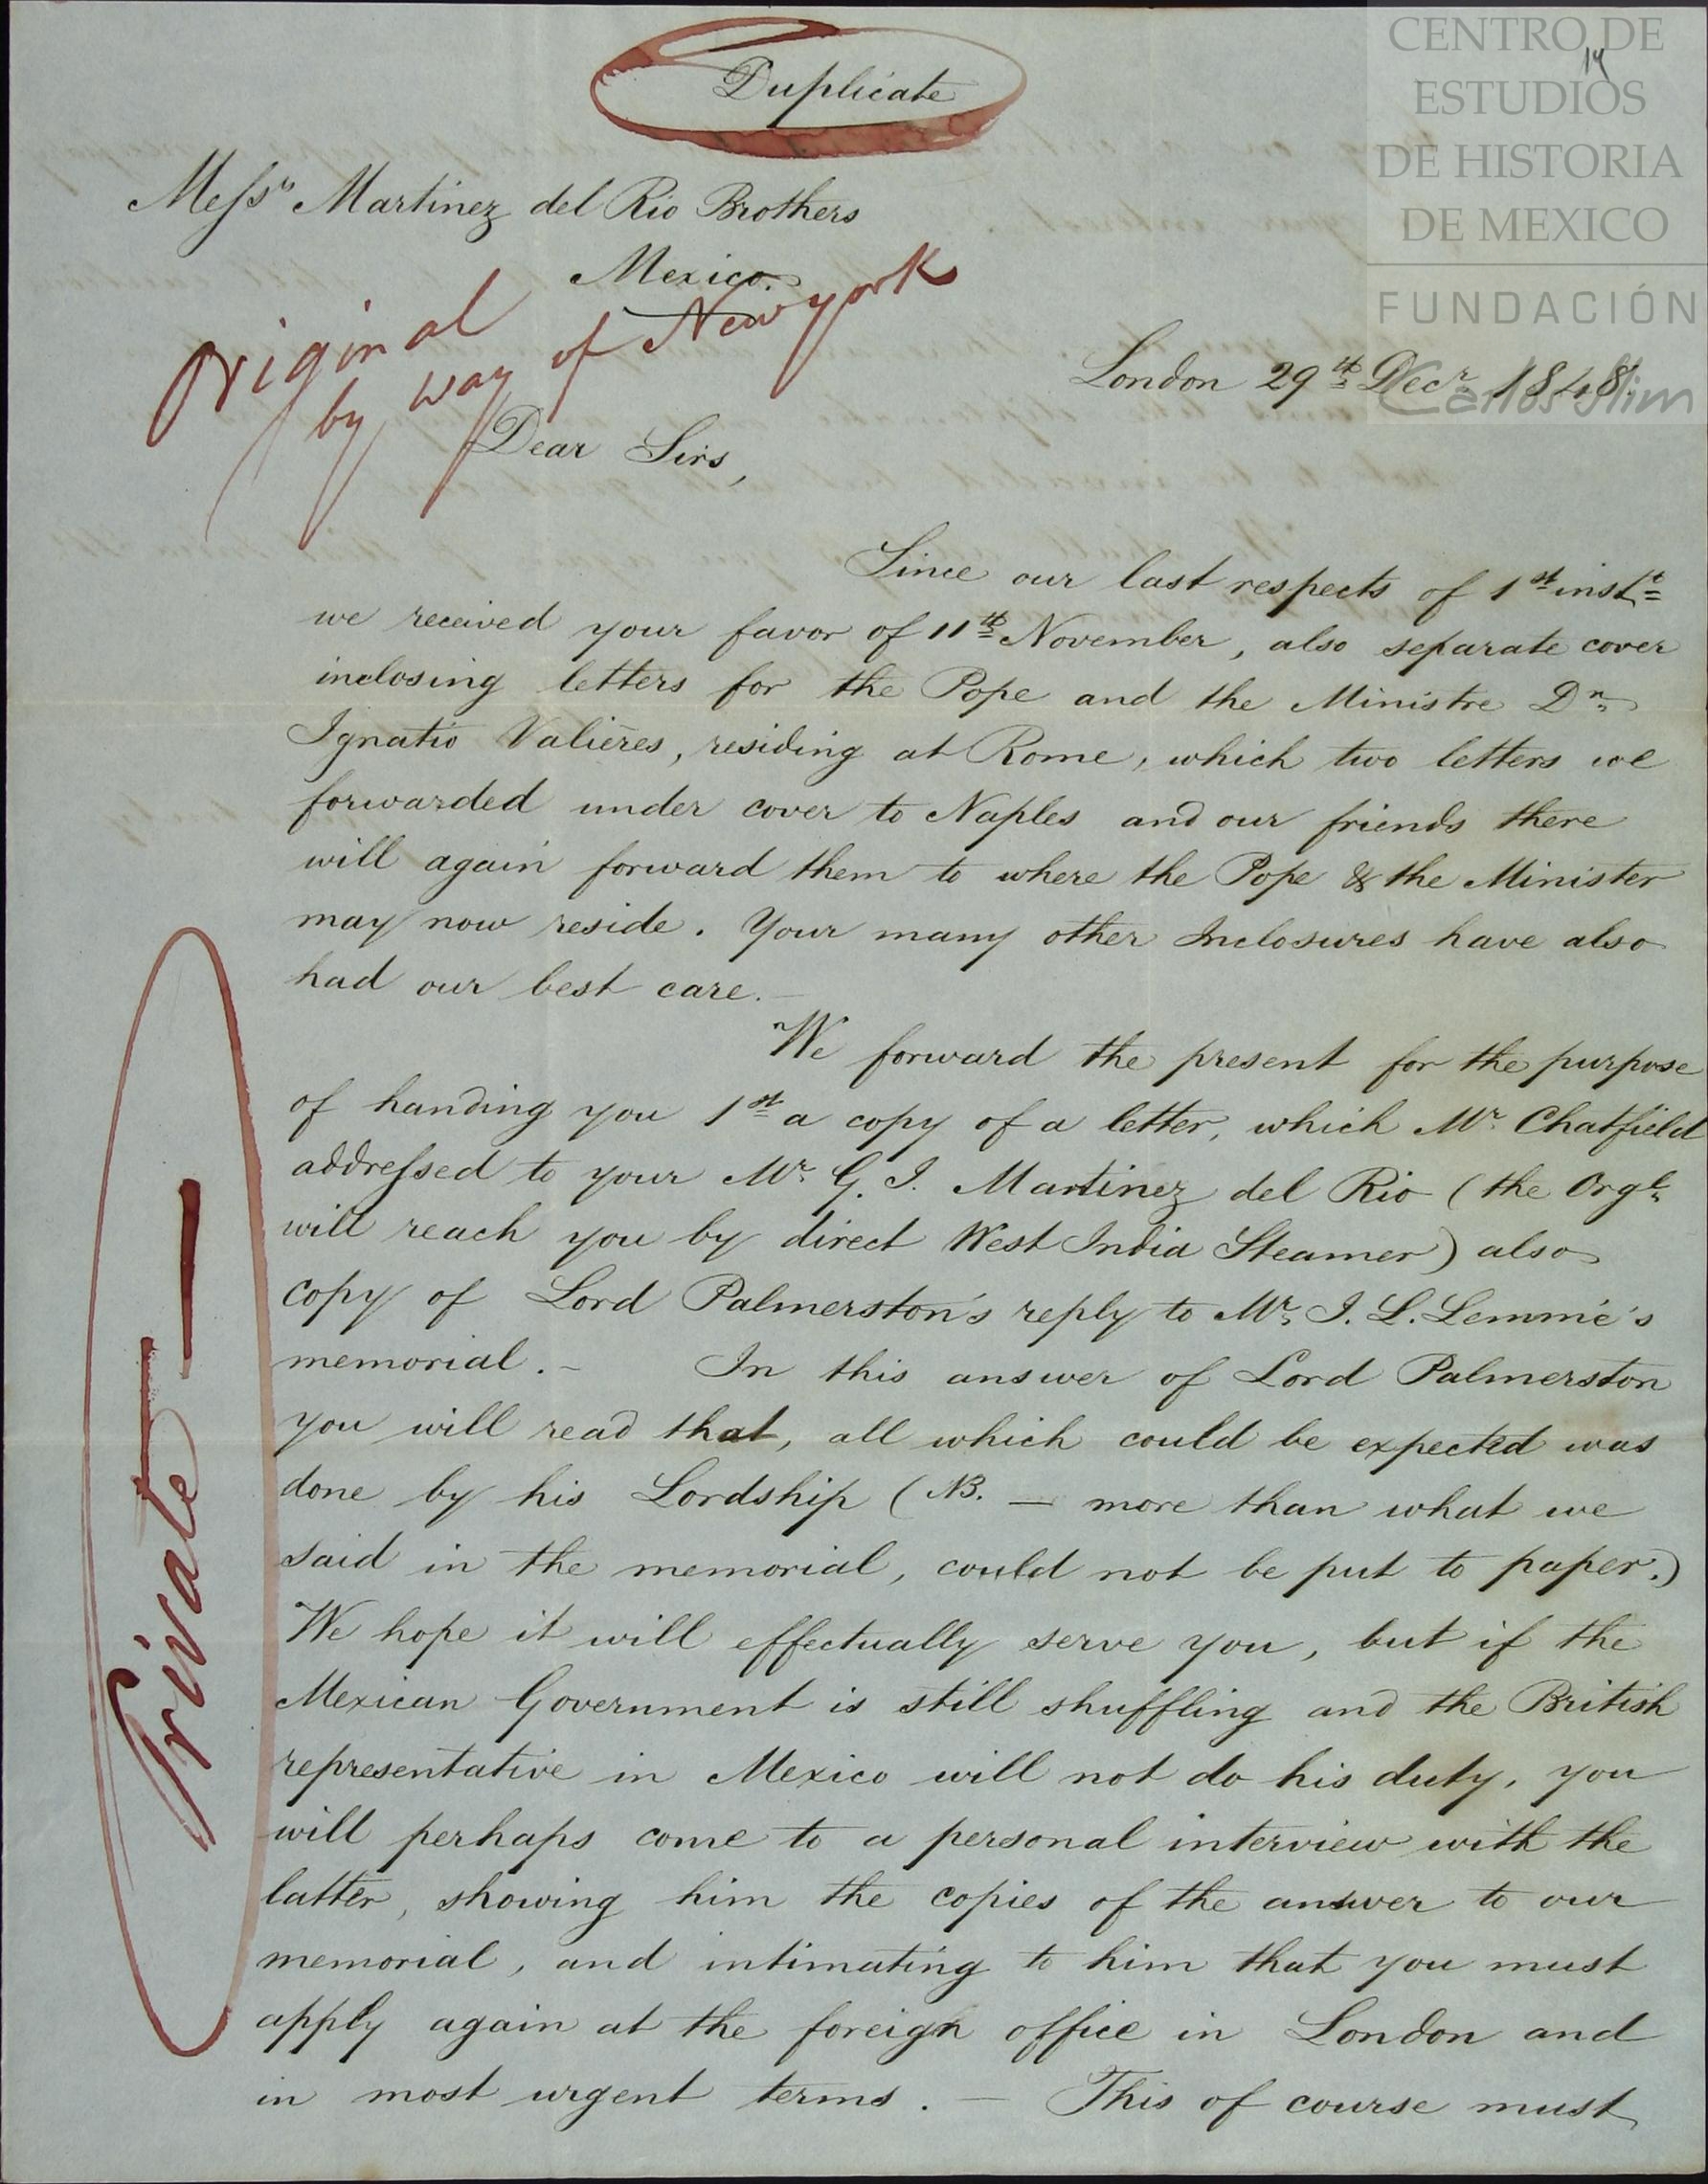 Duplicate
14
CENTRO DE
ESTUDIOS
DE HISTORIA
DE MEXICO
FUNDACIÓN
Carlos Slim
Messrs Martinez del Rio Brothers
Mexico.
Original
by way of Newyork
London 29th Decr. 1848.
Dear Sirs,
Since our last respects of 1st inst.
we received your favor of 11th November, also separate cover
inclosing letters for the Pope and the Ministre Dn.
Ignatio Valières, residing at Rome, which two letters we
forwarded under cover to Naples and our friends there
will again forward them to where the Pope & the Minister
may now reside. Your many other Inclosures have also
had our best care.—
We forward the present for the purpose
of handing you 1st a copy of a letter, which Mr. Chatfield
addressed to your Mr. G. J. Martinez del Rio (the Orgl.
will reach you by direct West India Steamer) also
copy of Lord Palmerston's reply to Mr. J. L. Lemmé's
memorial.— In this answer of Lord Palmerston
you will read that, all which could be expected was
done by his Lordship (NB. — more than what we
said in the memorial, could not be put to paper.)
We hope it will effectually serve you, but if the
Mexican Government is still shuffling and the British
representative in Mexico will not do his duty, you
will perhaps come to a personal interview with the
latter, showing him the copies of the answer to our
memorial, and intimating to him that you must
apply again at the foreign office in London and
in most urgent terms. — This of course must
Private —